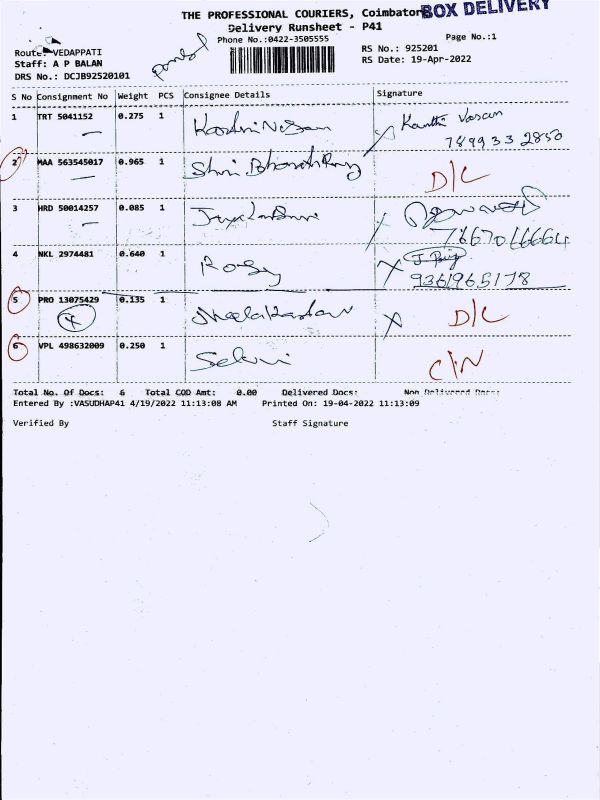 THE PROFESSIONAL COURIERS, Coimbatore
BOX DELIVERY
Delivery Runsheet - P41
Phone No.:0422-3505555
Page No.:1
Route: VEDAPPATI
Staff: A P BALAN
DRS No.: DCJB92520101
RS No.: 925201
RS Date: 19-Apr-2022
S No Consignment No Weight PCS Consignee Details Signature
1 TRT 5041152 0.275 1 Vasan
2 MAA 563545017 0.965 1 D/C
3 HRD 50014257 0.085 1
4 NKL 2974481 0.640 1 Rosy
9361965178
5 PRO 13075429 0.135 1 D/C
6 VPL 498632009 0.250 1 Selvi
Total No. Of Docs: 6 Total COD Amt: 0.00 Delivered Docs: Non Delivered Docs:
Entered By :VASUDHAP41 4/19/2022 11:13:08 AM Printed On: 19-04-2022 11:13:09
Verified By Staff Signature